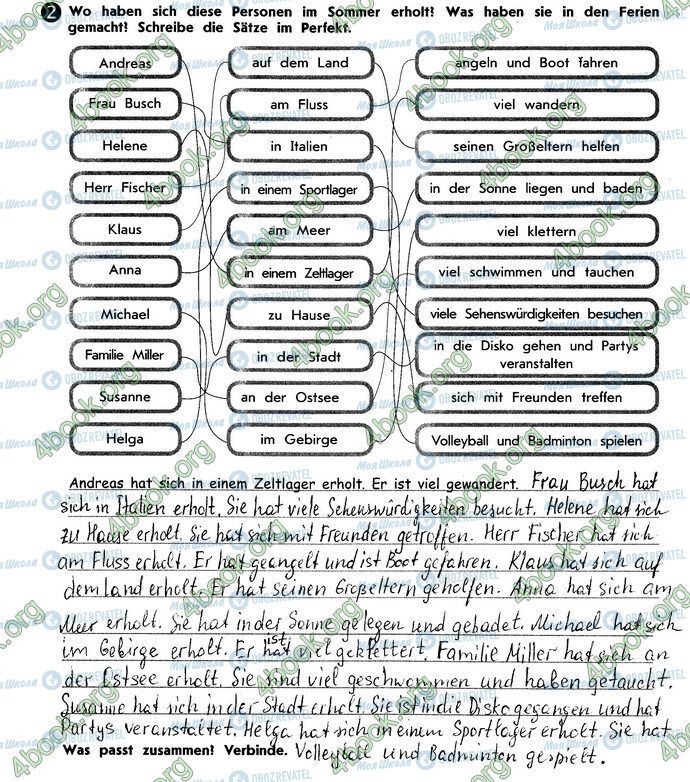 2 Wo haben sich diese Personen im Sommer erholt? Was haben sie in den Ferien
gemacht? Schreibe die Sätze im Perfekt.
Andreas
auf dem Land
angeln und Boot fahren
Frau Busch
am Fluss
viel wandern
Helene
in Italien
seinen Großeltern helfen
Herr Fischer
in einem Sportlager
in der Sonne liegen und baden
Klaus
am Meer
viel klettern
Anna
in einem Zeltlager
viel schwimmen und tauchen
Michael
zu Hause
viele Sehenswürdigkeiten besuchen
Familie Miller
in der Stadt
in die Disko gehen und Partys
veranstalten
Susanne
an der Ostsee
sich mit Freunden treffen
Helga
im Gebirge
Volleyball und Badminton spielen
Andreas hat sich in einem Zeltlager erholt. Er ist viel gewandert. Frau Busch hat
sich in Italien erholt. Sie hat viele Sehenswürdigkeiten besucht. Helene hat sich
zu Hause erholt. Sie hat sich mit Freunden getroffen. Herr Fischer hat sich
am Fluss erholt. Er hat geangelt und ist Boot gefahren. Klaus hat sich auf
dem Land erholt. Er hat seinen Großeltern geholfen. Anna hat sich am
Meer erholt. Sie hat in der Sonne gelegen und gebadet. Michael hat sich
ist
im Gebirge erholt. Er hat viel geklettert. Familie Miller hat sich an
der Ostsee erholt. Sie sind viel geschwommen und haben getaucht.
Susanne hat sich in der Stadt erholt. Sie ist in die Disko gegangen und hat
Partys veranstaltet. Helga hat sich in einem Sportlager erholt. Sie hat
Was passt zusammen? Verbinde. Volleyball und Badminton gespielt.
4book.org
Моя Школа
OBOZREVATEL